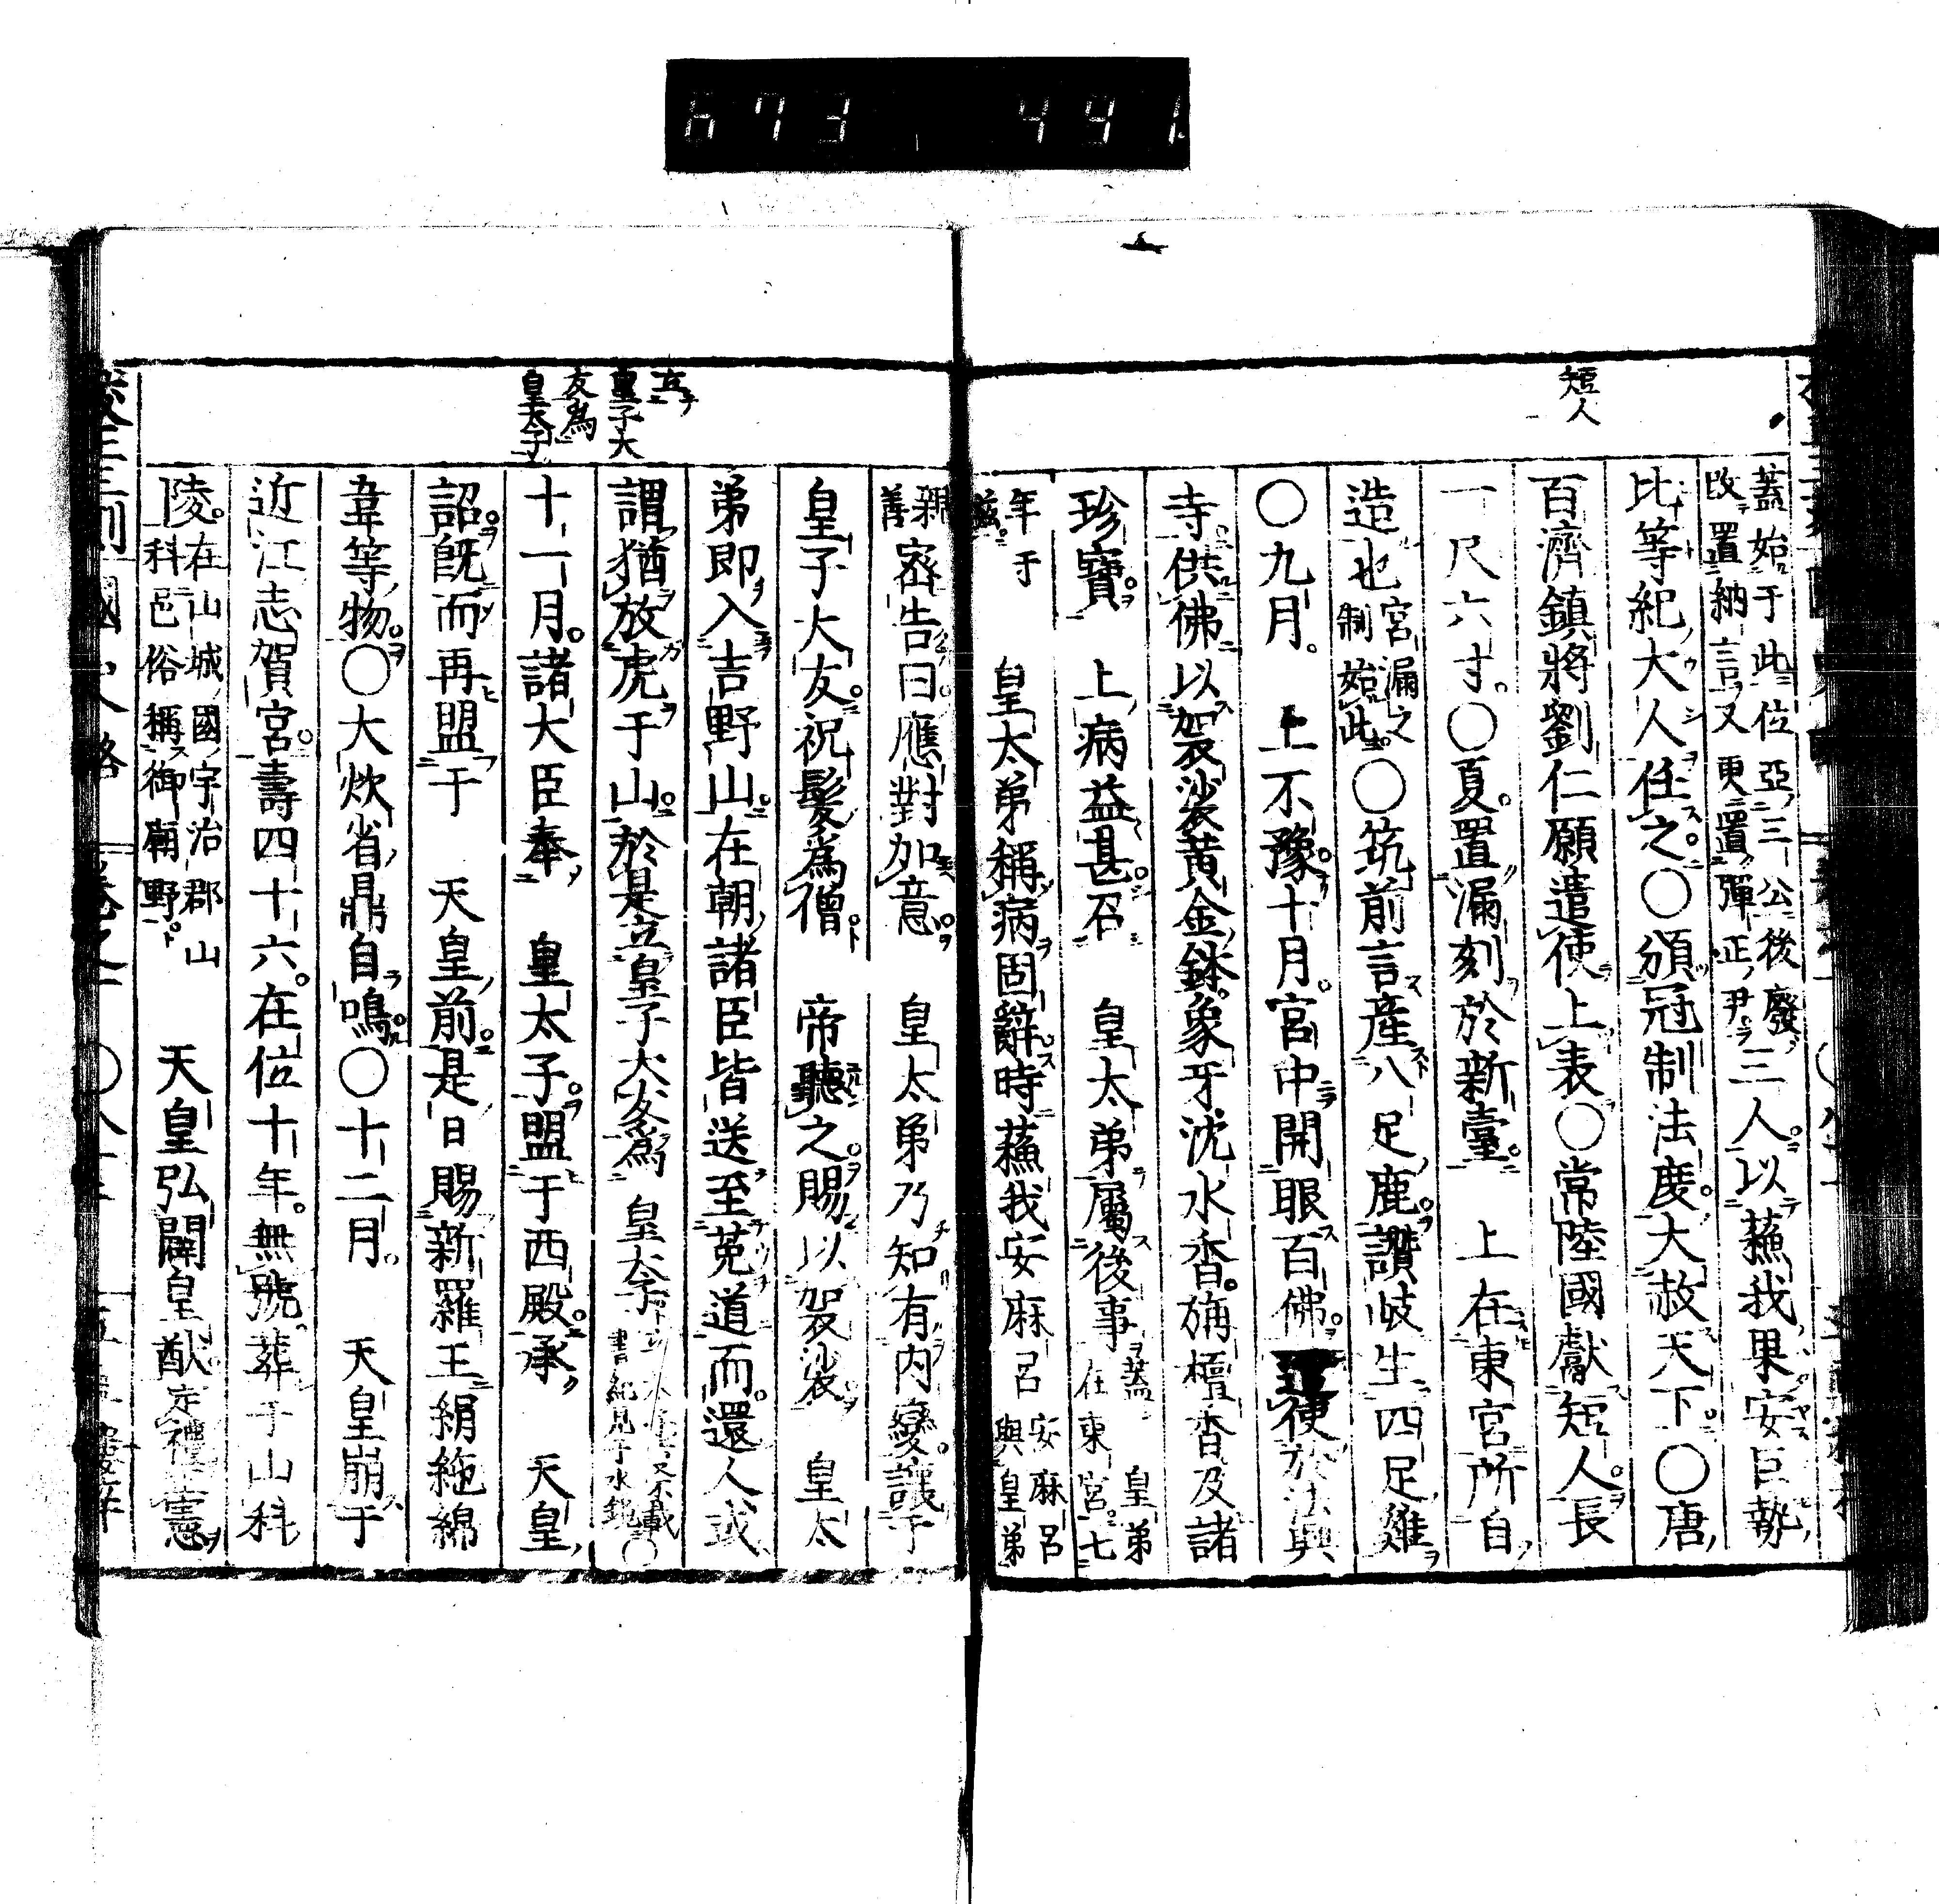 673 491
短人
蓋始于此位亞三公後廢
改置納言又更置彈正尹
三人以蘓我果安巨勢
比等紀大人任之〇頒冠制法度大赦天下〇唐
百濟鎮將劉仁願遣使上表〇常陸國獻短人長
一尺六寸〇夏置漏刻於新臺　上在東宮所自
造也
宮漏之
制始此
〇筑前言產八足鹿讚岐生四足雞
〇九月　上不豫十月宮中開眼百佛遣使於法興
寺供佛以袈裟黃金鉢象牙沈水香旃檀香及諸
珍寶　上病益甚召　皇太弟屬後事
蓋　皇弟
在東宮七
年于
茲
皇太弟稱病固辭時蘓我安麻呂
安麻呂
與皇弟
親
善
密告曰應對加意　皇太弟乃知有內變讓于
皇子大友祝髮爲僧　帝聽之賜以袈裟　皇太
弟即入吉野山在朝諸臣皆送至菟道而還人或
立
皇子大
友爲
皇太子
謂猶放虎于山於是立皇子大友爲　皇太子
書紀見于水鏡
〇
十一月諸大臣奉　皇太子盟于西殿承　天皇
詔既而再盟于　天皇前是日賜新羅王絹絁綿
韋等物〇大炊省鼎自鳴〇十二月　天皇崩于
近江志賀宮壽四十六在位十年無號葬于山科
陵
在山城國宇治郡山
科邑俗稱御廟野
天皇弘闢皇猷定禮憲